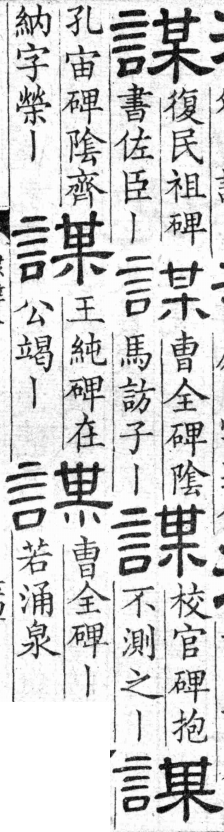 謀
復民祖碑
書佐臣丨
謀
曺全碑陰
馬訪子丨
謀
校官碑抱
不測之丨
謀
孔宙碑陰齊
納字榮丨
謀
王純碑在
公竭丨
謀
曺全碑丨
若涌泉